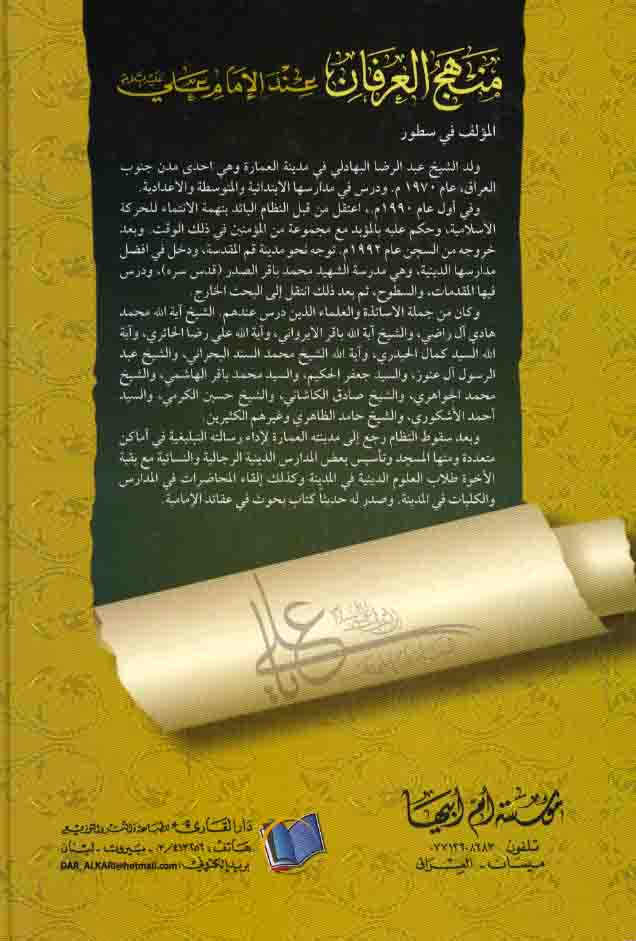 منهج العرفان عند الإمام علي عليه السلام
المؤلف في سطور
ولد الشيخ عبد الرضا البهادلي في مدينة العمارة وهي احدى مدن جنوب
العراق، عام ١٩٧٠ م. ودرس في مدارسها الابتدائية والمتوسطة والاعدادية.
وفي أول عام ١٩٩٠م.، اعتقل من قبل النظام البائد بتهمة الانتماء للحركة
الاسلامية، وحكم عليه بالمؤبد مع مجموعة من المؤمنين في ذلك الوقت. وبعد
خروجه من السجن عام ١٩٩٢م. توجه نحو مدينة قم المقدسة، ودخل في افضل
مدارسها الدينية، وهي مدرسة الشهيد محمد باقر الصدر (قدس سره)، ودرس
فيها المقدمات، والسطوح، ثم بعد ذلك انتقل إلى البحث الخارج.
وكان من جملة الاساتذة والعلماء الذين درس عندهم. الشيخ آية الله محمد
هادي آل راضي، والشيخ آية الله باقر الايرواني، وآية الله علي رضا الحائري، وآية
الله السيد كمال الحيدري، وآية الله الشيخ محمد السند البحراني، والشيخ عبد
الرسول آل عنوز، والسيد جعفر الحكيم، والسيد محمد باقر الهاشمي، والشيخ
محمد الجواهري، والشيخ صادق الكاشاني، والشيخ حسين الكرمي، والسيد
أحمد الأشكوري، والشيخ حامد الظاهري وغيرهم الكثيرين.
وبعد سقوط النظام رجع إلى مدينته العمارة لإداء رسالته التبليغية في أماكن
متعددة ومنها المسجد وتأسيس بعض المدارس الدينية الرجالية والنسائية مع بقية
الأخوة طلاب العلوم الدينية في المدينة وكذلك إلقاء المحاضرات في المدارس
والكليات في المدينة. وصدر له حديثاً كتاب بحوث في عقائد الإمامية.
علي
مؤسسة أم أبيها
تلفون ٠٧٧١٢٦٠٨٦٨٣
ميسان - العراق
دار القارئ للطباعة والنشر والتوزيع
هاتف: ٠٣/٤١٣٢٥٦ - بيروت - لبنان
بريد إلكتروني: DAR_ALKARI@hotmail.com